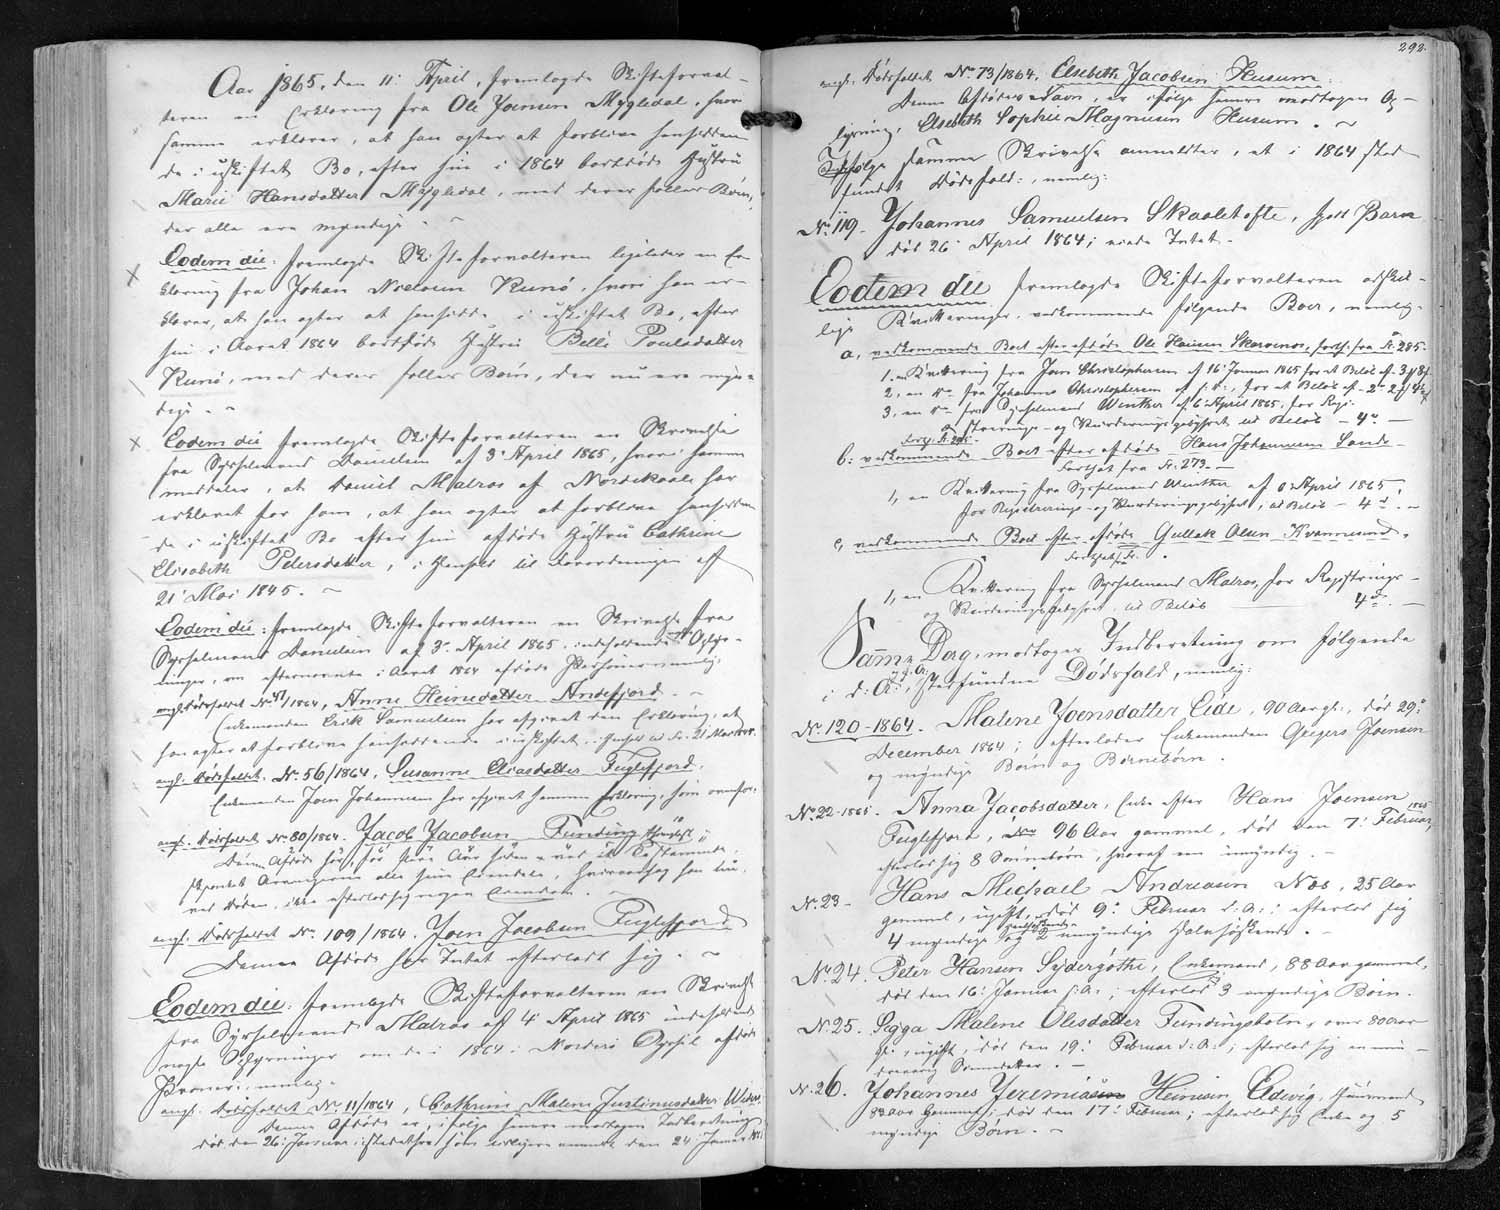 Aar 1865, den 11: April, fremlagde Skifteforval-
teren en Erklæring fra Ole Joensen Mygledal, hvori
samme erklærer, at han agter at forblive hensidden-
de i uskiftet Bo, efter sin i 1864 bortdøde Hustru
Marie Hansdatter Mygledal, med deres fælles Børn,
der alle ere myndige. ~
Eodem die: fremlagde Skifteforvalteren ligeledes en Er-
klæring fra Johan Nielsen Kunø, hvori han er-
klærer, at han agter at hensidde i uskiftet Bo, efter
sin i Aaret 1864 bortdøde Hustru Belle Poulsdatter
Kunø, med deres fælles Børn, der nu ere myn-
dige. ~
Eodem die fremlagde Skifteforvalteren en Skrivelse
fra Sysselmand Danielsen af 3: April 1865, hvori samme
meddeler, at Daniel Matras af Nordskaale har
erklæret for ham, at han agter at forblive hensidden-
de i uskiftet Bo efter sin afdøde Hustru Cathrine
Elisabeth Petersdatter, i Henhold til Forordningen af
21: Mai 1845. ~
Eodem die: fremlagde Skifteforvalteren en Skrivelse fra
Sysselmand Danielsen af 3: April 1865, indeholdende Oplys-
ninger, om efternævnte i Aaret 1864 afdøde Personer nemlig:
angl. Dødsfaldet No /1864, Anne Heinesdatter Andefjord. ~
Enkemanden Erik Samuelsen har afgivet den Erklæring, at
han agter at forblive hensiddende i uskiftet, i Henhold til Fr. 21 Mai 1845.
angl. Dødsfaldet No. 56/1864, Susanne Eliasdatter Fuglefjord.
Enkemanden Joen Johannesen har afgivet samme Erklæring, som ovenfor.
angl. Dødsfaldet No 80/1864. Jacob Jacobsen Funding
Denne Afdøde har, for flere Aar siden ved et Testamente,
skjænket alle sine Eiendele, hvorved han nu
ved Døden, ikke efterlod sig nogen Eiendom. ~
angl. Dødsfaldet No. 109/1864. Joen Jacobsen Fuglefjord
Denne Afdøde har Intet efterladt sig. ~
Eodem die: fremlagde Skifteforvalteren en Skrivelse
fra Sysselmand Matras af 4: April 1865 indeholdende
nogle Oplysninger om de i 1864 i Norderø Syssel afdøde
Personer, nemlig:
angl. Dødsfaldet No. 11/1864, Cathrine Malene Justinusdatter
Denne Afdøde er, ifølge senere modtagen Indberetning
død den 26: Januar istedetfor som tidligere anmeldt den 24: Januar
292.
angl. Dødsfaldet No. 73/1864, Elsebeth Jacobsen Husum:
Denne Afdødes Navn, er ifølge senere modtagen Op-
lysning, Elsebeth Sophie Magnusen Husum. ~
Ifølge samme Skrivelse anmeldtes, at i 1864 sted-
fundet Dødsfald:, nemlig:
No. 119. Johannes Samuelsen Skaaletofte, Barn
død 26: April 1864; eiede Intet. ~
Eodem die fremlagde Skifteforvalteren adskil-
lige Kvitteringer, vedkommende følgende Boer, nemlig:
a, vedkommende Boet efter afdøde Ole Hansen Skarvenes, forts. fra Fr. 285.
1. en Kvittering fra Joen Christophersen af 16: Januar 1865 for et Beløb af 3
2, en do. fra Johannes Christophersen af s: D:, for et Beløb af
3, en do. fra Sysselmand Winther af 6: April 1865, for Regi-
strerings- og Vurderingsgebyhret til Beløb - 4
b: vedkommende Boet efter afdøde Hans Johannesen Sand-
fortsat fra Fr. 273. ~
1, en Kvittering fra Sysselmand Winther af 6: April 1865,
for Registrerings- og Vurderingsgebyhret, til Beløb - 4
c, vedkommende Boet efter afdøde Gullak Olsen Kvannesund,
fortsat fra Fr.
1, en Kvittering fra Sysselmand Matras, for Registrerings-
og Vurderingsgebyhret, til Beløb 4
Samme Dag, modtoges Indberetning om følgende
i d: A:, stedfundne Dødsfald, nemlig:
No. 120-1864. Malene Joensdatter Eide, 90 Aar gl., død 29:
December 1864; efterlader Enkemanden Joensen
og myndige Børn og Børnebørn.
No. 22-1865. Anna Jacobsdatter, Enke efter Hans Joensen
Fuglefjord, 96 Aar gammel, død den 7: Februar, 1865
efterlod sig 8 Sønnebørn, hvoraf een umyndig. ~
No. 23- Hans Michael Andreasen Næs, 25 Aar
gammel, ugift, død 9: Februar d: A:; efterlod sig
4 myndige og 2 umyndige Halvsødskende. ~
No. 24. Peter Hansen Sydergøthe, Enkemand, 88 Aar gammel,
død den 16: Januar d: A:; efterlod 3 myndige Børn.
No. 25. Segga Malene Olesdatter Fundingsbotn, over 80 Aar
gl., ugift, død den 19: Februar d: A:; efterlod sig en
~
No. 26. Johannes Jeremiasen Heinesen Eldevig,
82 Aar gammel; død den 17: Februar; efterlod sig Enke og 5
myndige Børn. ~